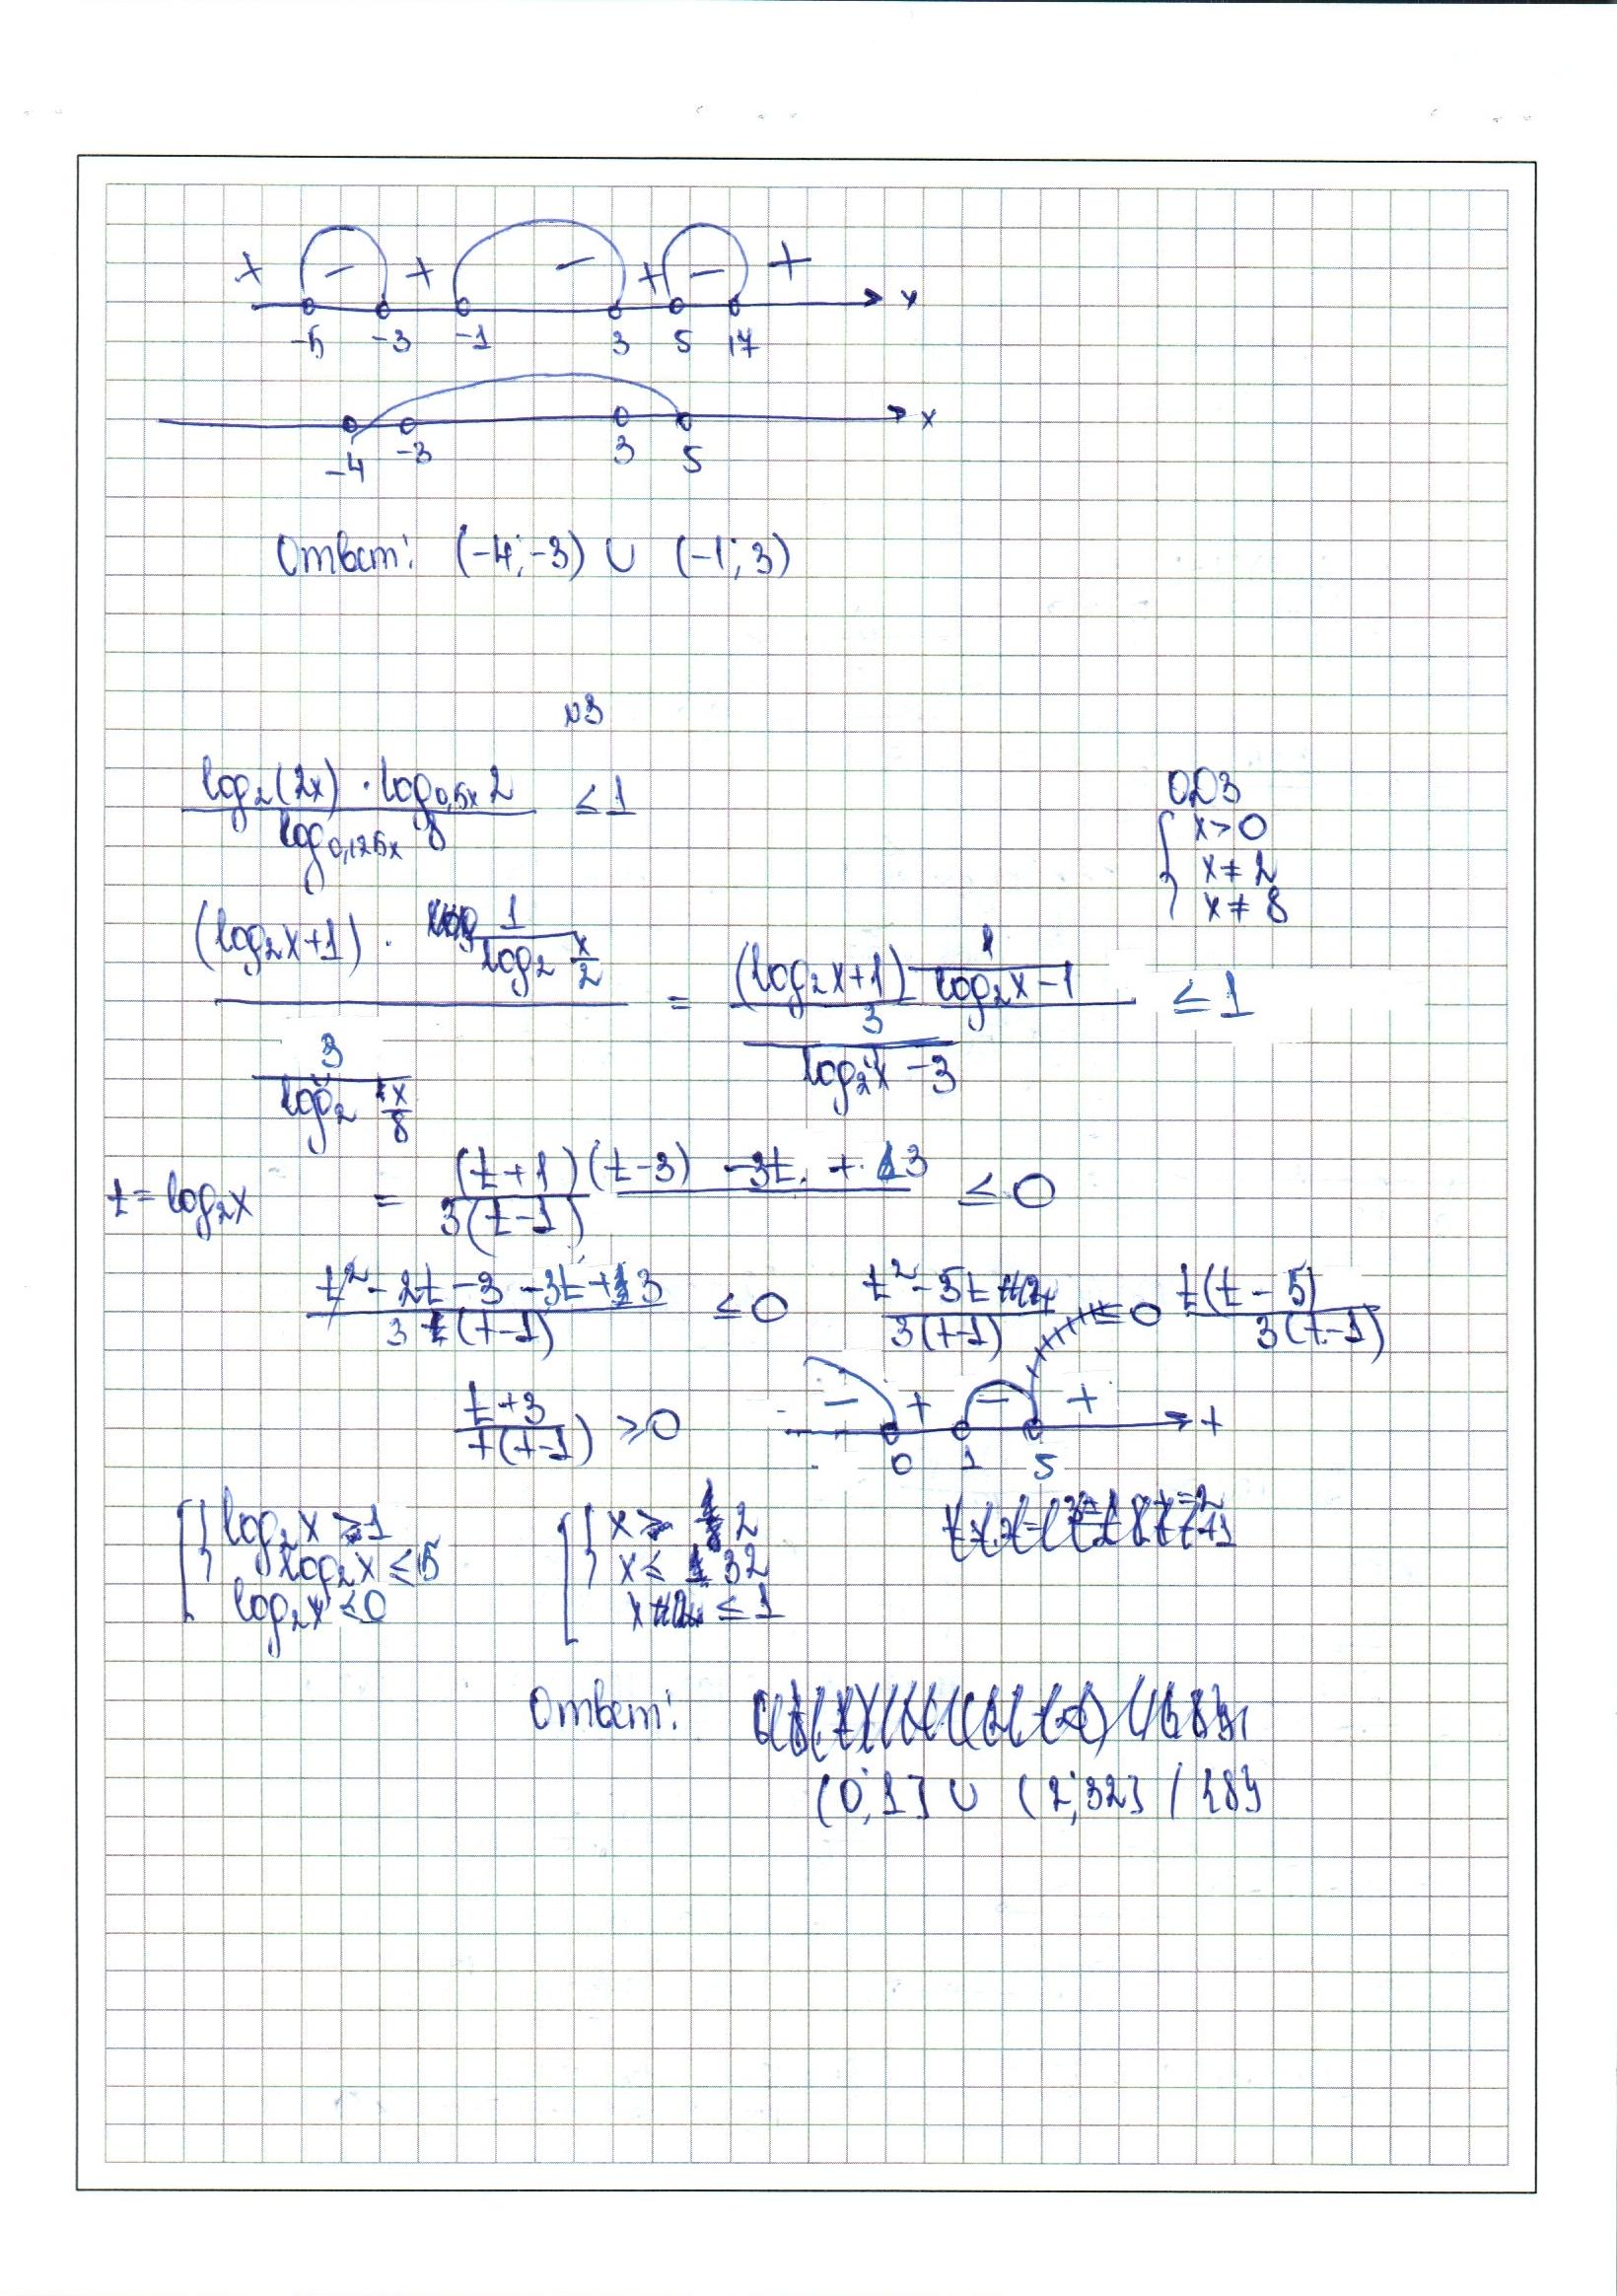 + − + − + − +
-5 -3 -1 3 5 17 x
-4 -3 3 5 x
Ответ: (-4;-3) ∪ (-1; 3)
№3
log₂(2x) · log₀,₅ₓ2 / log₀,₁₂₅ₓ 8 ≤ 1
ОДЗ
{ x>0
x≠2
x≠8
(log₂x+1) · 1/(log₂ x/2) / (3/(log₂ x/8)) = (log₂x+1) 1/(log₂x-1) / (3/(log₂x-3)) ≤ 1
t = log₂x = (t+1)(t-3) -3t + 3 / 3(t-1) ≤ 0
t²-2t-3-3t+3 / 3(t-1) ≤ 0 t²-5t / 3(t-1) ≤ 0 t(t-5) / 3(t-1)
t+3 / t(t-1) ≥ 0 − + − + t
0 1 5
[ { log₂x > 1 [ { x > 2
log₂x ≤ 5 x ≤ 32
log₂x ≤ 0 x ≤ 1
Ответ:
(0;1] ∪ (2;32] / {8}